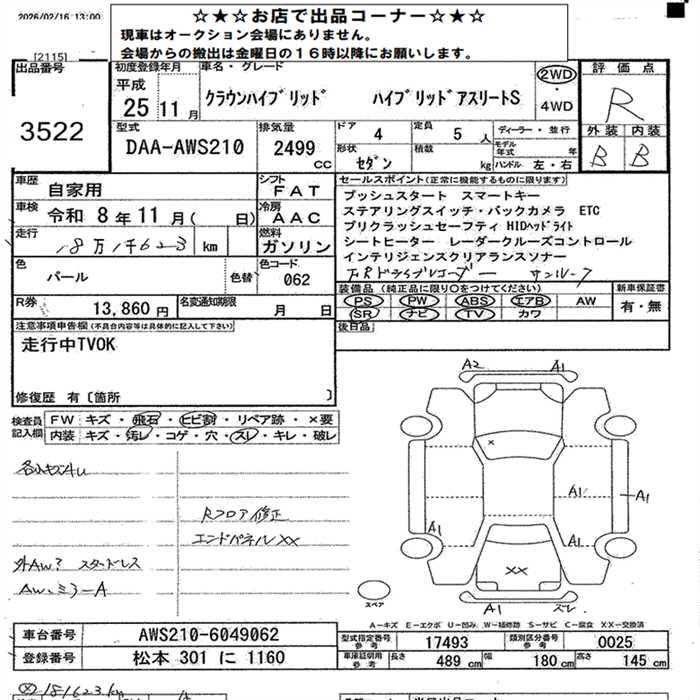 2026/02/16 13:00
☆★☆お店で出品コーナー☆★☆
現車はオークション会場にありません。
会場からの搬出は金曜日の16時以降にお願いします。
[2115]
出品番号
3522
初度登録年月
平成
25年11月
車名・グレード
クラウンハイブリッド ハイブリッドアスリートS
2WD
・
4WD
評価点
R
外装 内装
B B
型式
DAA-AWS210
排気量
2499
cc
ドア 4
形状 セダン
定員 5 人
積載 kg
ディーラー・並行
モデル年式 年
ハンドル 左・右
車歴
自家用
シフト
FAT
車検
令和 8年11月( 日)
冷房
AAC
走行
18万1千623 km
燃料
ガソリン
色
パール
色替
色コード
062
R券
13,860円
名変通知期限
月 日
セールスポイント(正常に機能するものに限ります)
プッシュスタート スマートキー
ステアリングスイッチ・バックカメラ ETC
プリクラッシュセーフティ HIDヘッドライト
シートヒーター レーダークルーズコントロール
インテリジェンスクリアランスソナー
F.Rドライブレコーダー サンルーフ
装備品(純正品に限り○をつけてください)
PS PW ABS エアB AW
SR ナビ TV カワ
新車保証書
有・無
後日品
注意事項申告欄(不具合内容等は具体的に記入して下さい)
走行中TVOK
修復歴 有〔箇所 〕
検査員
記入欄
FW キズ・飛石・ヒビ割・リペア跡・×要
内装 キズ・汚レ・コゲ・穴・スレ・キレ・破レ
Rフロア修正
エンドパネルXX
外AW? スタッドレス
AW、ミラーA
A2
A1
×
A1
A1
A1
XX
A1
スレ
スペア
A=キズ E=エクボ U=凹み W=補修跡 S=サビ C=腐食 XX=交換済
車台番号
AWS210-6049062
登録番号
松本 301 に 1160
型式指定番号
参考
17493
類別区分番号
参考
0025
車庫証明用
参考
長さ
489 cm
幅
180 cm
高さ
145 cm
181623km